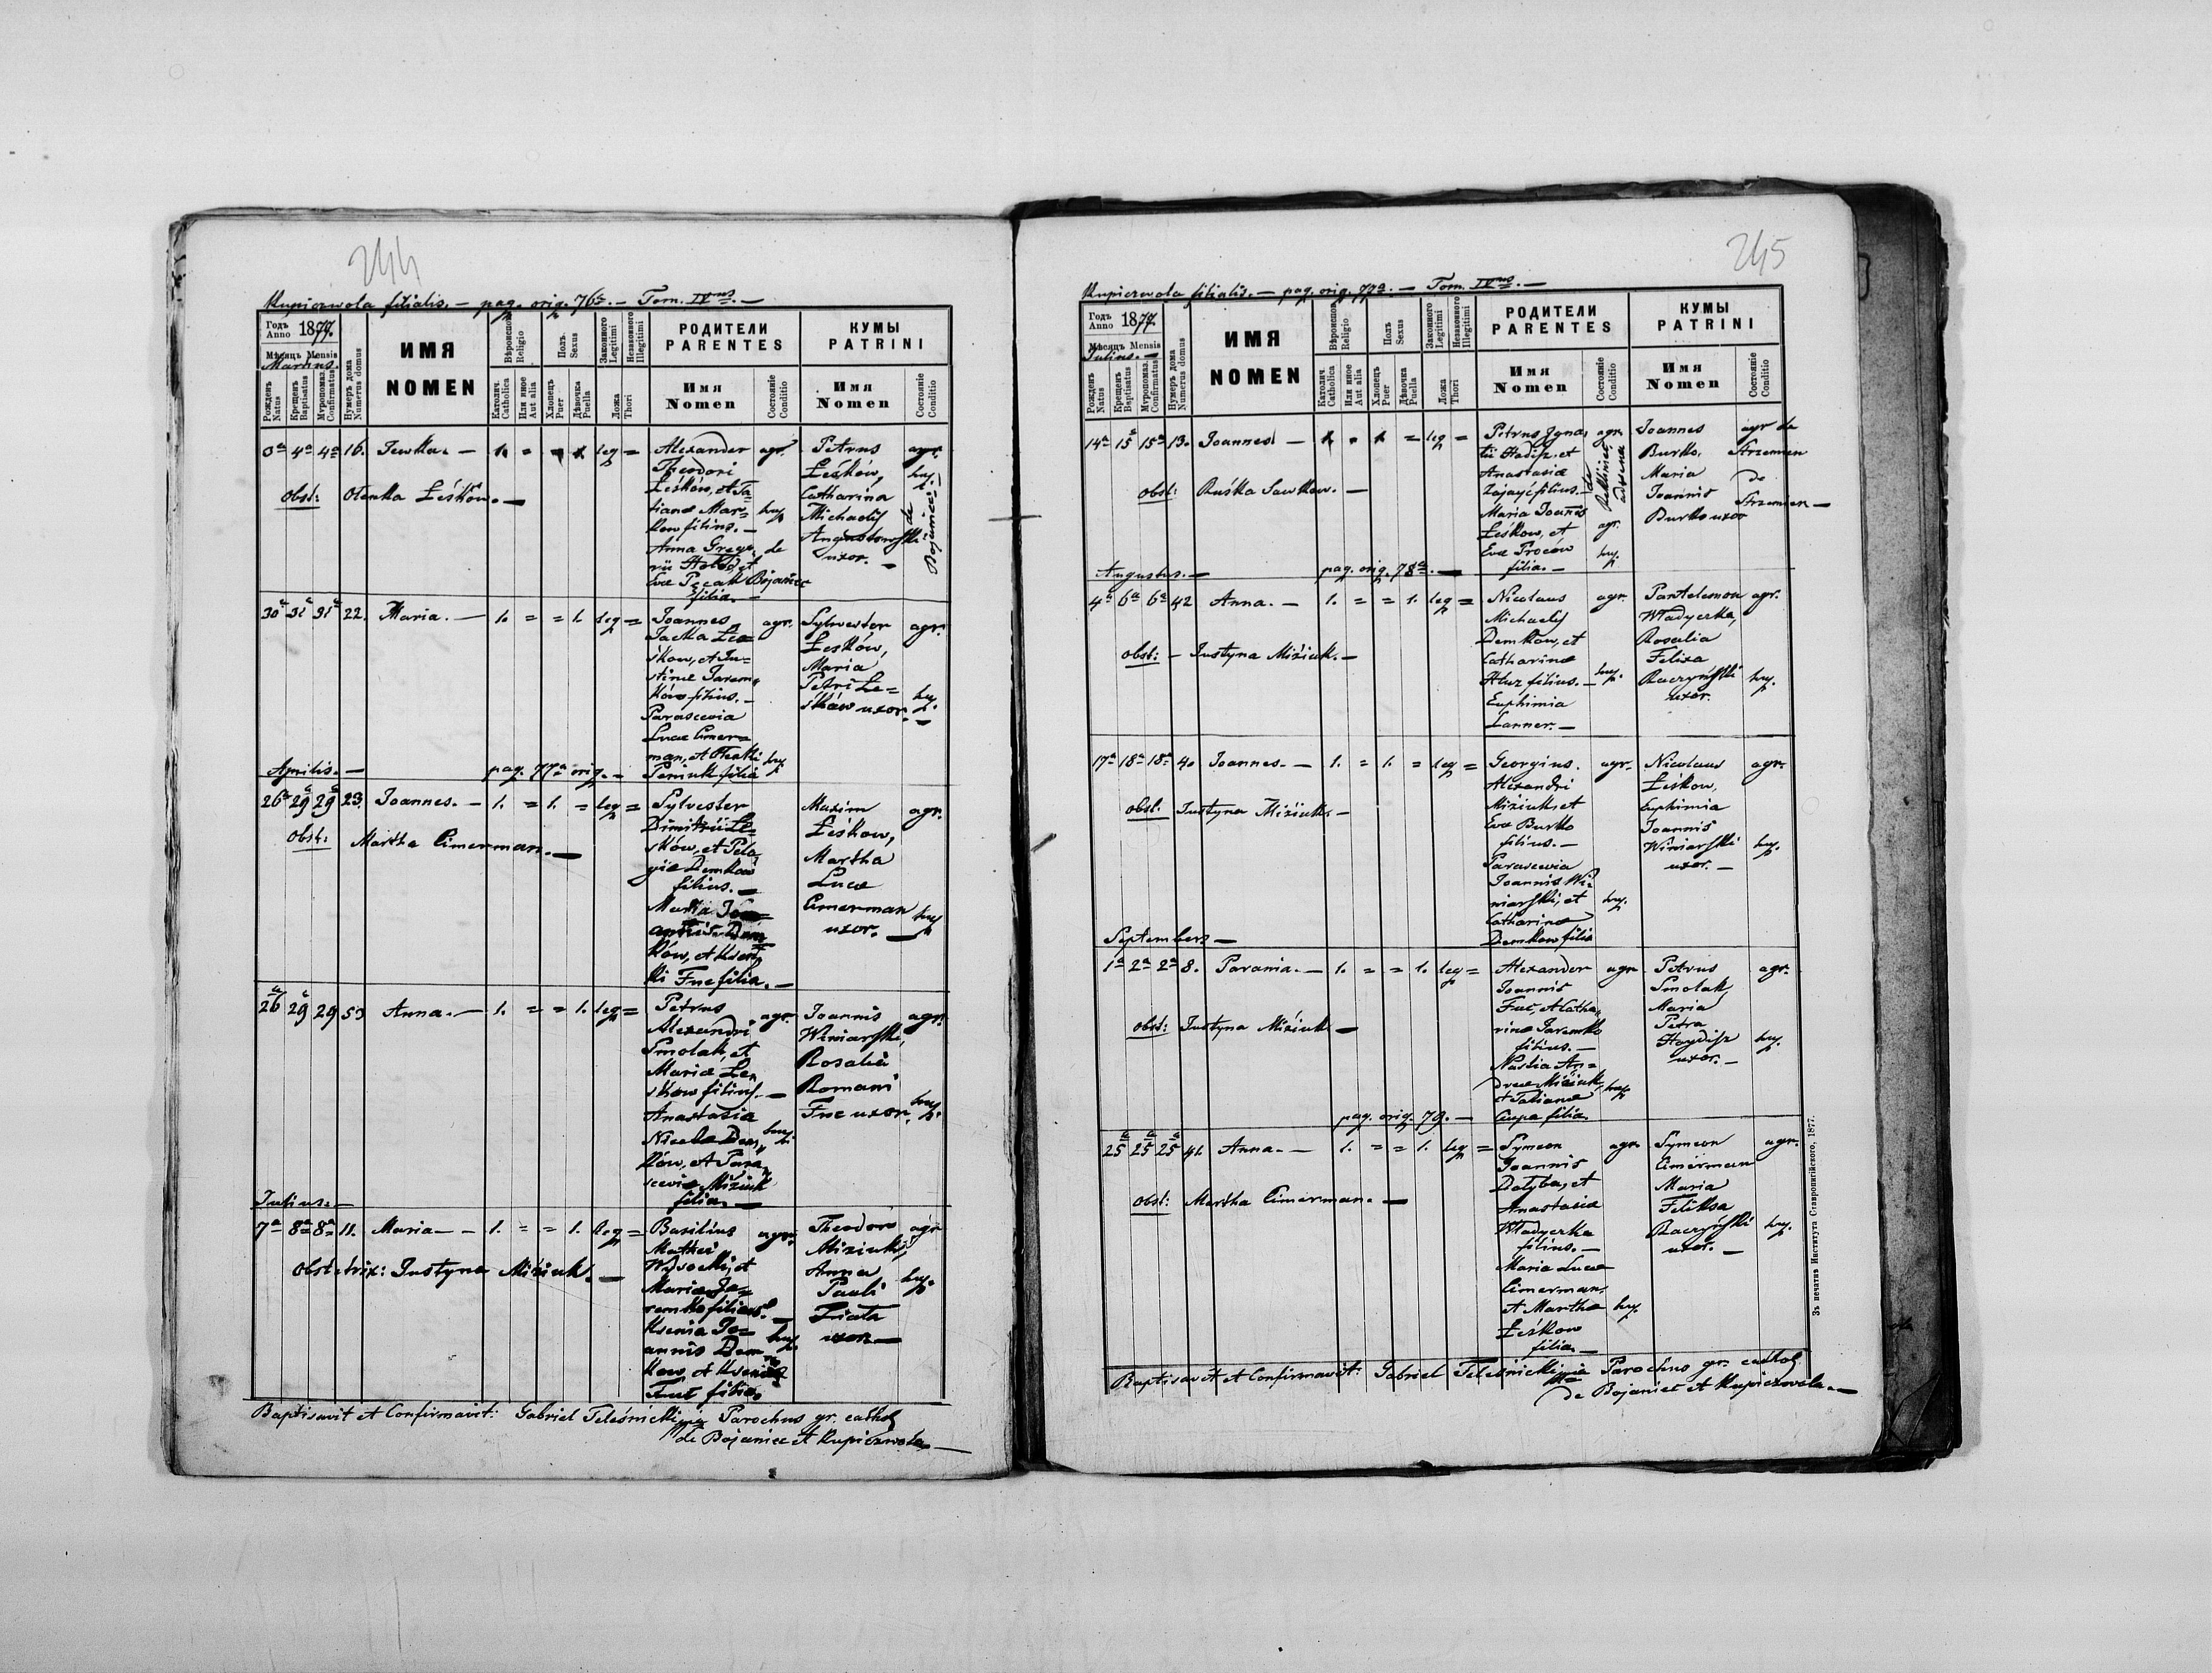 244
Kupiczwola filialis. — pag. orig. 76a. — Tom. IVus. —
Годъ Anno 1877.
Мѣсяцъ Mensis
Martius.
Рожденъ Natus
Крещенъ Baptisatus
Мѵропомаз. Confirmatus
Нумеръ дома Numerus domus
ИМЯ
NOMEN
Вѣроисповѣд. Religio
Католич. Catholica
Или иное Aut alia
Полъ Sexus
Хлопецъ Puer
Дѣвочка Puella
Законного Legitimi
Незаконного Illegitimi
Ложа Thori
РОДИТЕЛИ
PARENTES
Имя
Nomen
Состояніе Conditio
КУМЫ
PATRINI
Имя
Nomen
Состояніе Conditio
3a 4a 4a 16. Tewkla. — 1. = leg =
obst: Olenka Leśków. —
Alexander agr.
Theodori
Leśków, et Ta=
tianæ Mar=
kow filius. — huj.
Anna Grego
rii Hołod, et de
Evæ Pecak Bojaniec
filia. —
Petrus agr.
Leśków, huj.
Catharina
Michaelis
Augustowski
uxor. —
de Bojaniec
30a 31a 31a 22. Maria. — 1. = = 1. leg =
Joannes agr.
Jacka Le=
śkow, et Ju=
stinæ Jarem=
ków filius. —
Parascevia
Lucæ Cimer=
man, et Olenki huj.
filia
Sylvester agr.
Leśków,
Maria
Petri Le= huj.
śków uxor. —
Aprilis. — pag. 77a orig. —
26a 29a 29a 23. Joannes. — 1. = 1. = leg =
obst: Martha Cimerman. —
Sylvester
Dimitrii Le=
śków, et Pela
giæ Demkow
filius. —
Maria Jo=
annis Dem
ków, et Ksen
ki Fuc filia. —
Maxim agr.
Leśkow,
Martha
Lucæ
Cimerman huj.
uxor. —
26a 29a 29 53 Anna. — 1. = = 1. leg =
Petrus agr.
Alexandri
Smolak, et
Mariæ Le=
śkow filius. —
Anastasia
Nicolai Dem huj.
ków, et Para
sceviæ Miziuk
filia. —
Joannis agr.
Winiarski,
Rosalia
Romani
Fuc uxor. huj.
Julius. —
7a 8a 8a 11. Maria — 1. = = 1. leg =
obstetrix: Justyna Miziuk. —
Basilius agr.
Mathei
Wysocki, et
Mariæ Ja=
remko filius. —
Ksenia Jo= huj.
annis Dem
kow, et Kseniæ
Fuc filia
Theodor agr
Miziuk,
Anna huj.
Pauli
uxor —
Baptisavit et Confirmavit: Gabriel Teleśnicki Parochus gr. cathol
de Bojaniec et Kupiczwola —
245
Kupiczwola filialis. — pag. orig. 77a. — Tom. IVus. —
Годъ Anno 1877.
Мѣсяцъ Mensis
Julius. —
Рожденъ Natus
Крещенъ Baptisatus
Мѵропомаз. Confirmatus
Нумеръ дома Numerus domus
ИМЯ
NOMEN
Вѣроисповѣд. Religio
Католич. Catholica
Или иное Aut alia
Полъ Sexus
Хлопецъ Puer
Дѣвочка Puella
Законного Legitimi
Незаконного Illegitimi
Ложа Thori
РОДИТЕЛИ
PARENTES
Имя
Nomen
Состояніе Conditio
КУМЫ
PATRINI
Имя
Nomen
Состояніе Conditio
14a 15a 15a 13. Joannes — 1. = 1. = leg =
obst: Ruśka Sawkow. —
Petrus Igna= agr.
tii Hadisz, et
Anastasiæ
Zajayć filius. —
Maria Joannis
Leśkow, et agr.
Evæ Proców huj.
filia. —
Joannes agr de
Burko, Strzemien
Maria de
Joannis Strzemien —
Burko uxor
Augustus. — pag. orig. 78a. —
4a 6a 6a 42 Anna. — 1. = = 1. leg =
obst: — Justyna Miziuk. —
Nicolaus agr.
Michaelis
Demkow, et
Catharinæ
filius. — huj.
Euphimia
Lanner. —
Pantelemon agr.
Władyczka,
Rosalia
Felixa
Raczyński huj.
uxor.
17a 18a 18a 40 Joannes. — 1. = 1. = leg =
obst. Justyna Miziuk. —
Georgius. agr.
Alexandri
Miziuk, et
Evæ Burko
filius. —
Parascevia
Joannis Wi=
niarski, et huj.
Catharinæ
Demkow filia
Nicolaus agr.
Leśkow,
Euphimia
Joannis
Winiarski huj.
uxor. —
Septembers —
1a 2a 2a 8. Parania. — 1. = = 1. leg =
obst: Justyna Miziuk —
Alexander agr
Joannis
Fuc, et Catha=
rinæ Jaremko
filius. —
Nastia An=
dreæ Miziuk, huj.
et Tatianæ
Ciupa filia
Petrus agr.
Smolak,
Maria
Petra
Haydisz huj.
uxor. —
pag. orig. 79. —
25a 25a 25a 41. Anna. — 1. = = 1. leg =
obst: Martha Cimerman. —
Symeon agr.
Joannis
Dołyba, et
Anastasiæ
Władyczka
filius. —
Maria Lucæ
Cimerman,
et Marthæ huj.
Leśkow
filia. —
Symeon agr.
Cimerman
Maria
Feliksa
Raczyński huj.
uxor. —
Baptisavit et Confirmavit: Gabriel Teleśnicki Parochus gr. cathol
de Bojaniec et Kupiczwola. —
Зъ печатнѣ Института Ставропигійского, 1877.